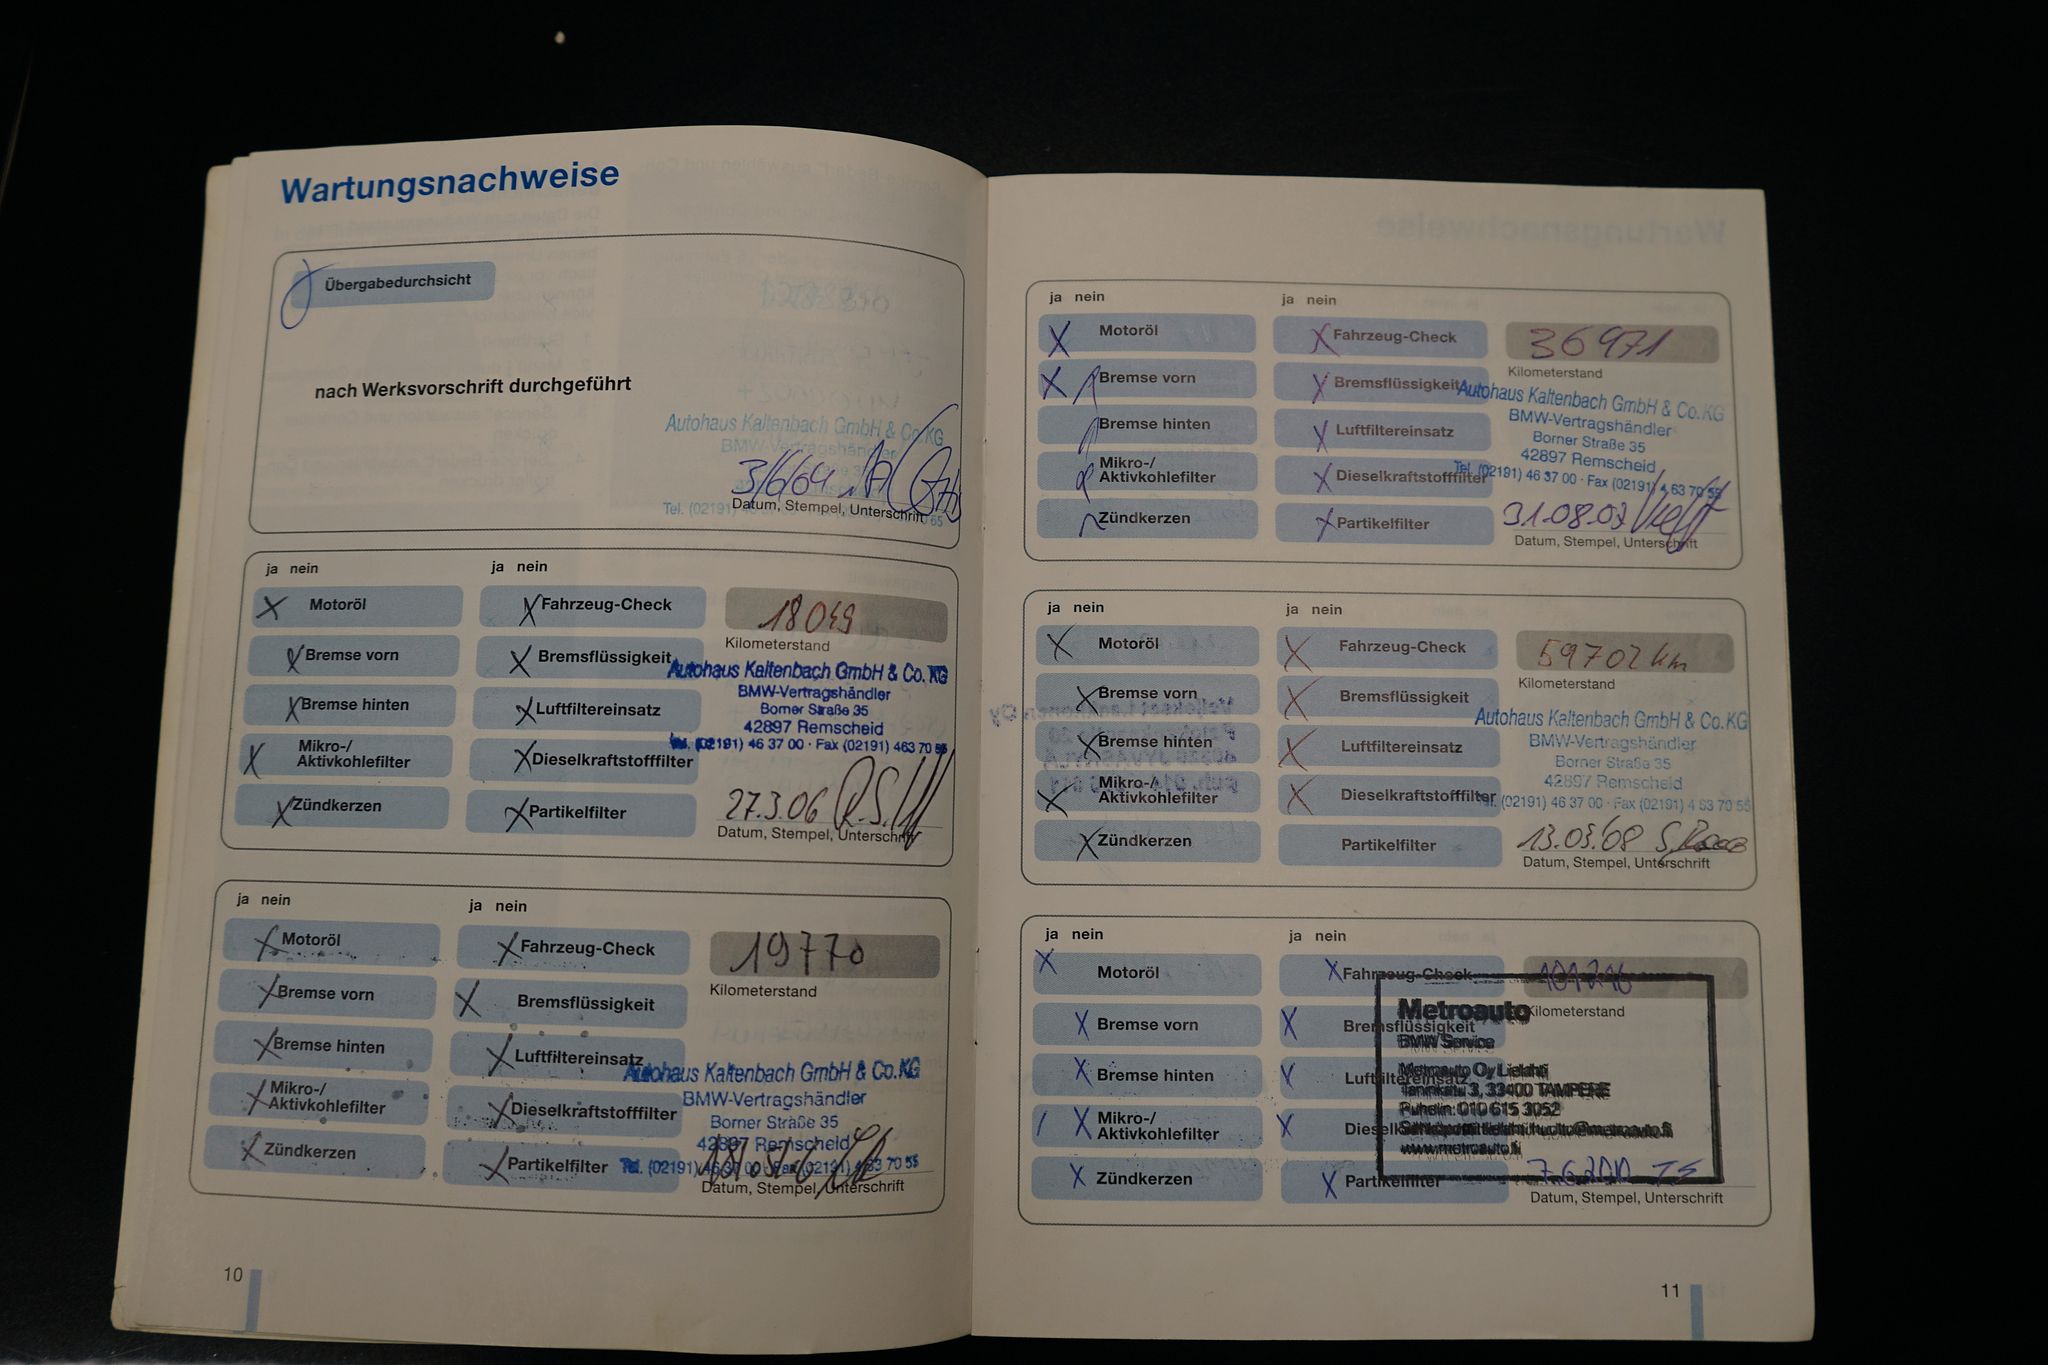 Wartungsnachweise
Übergabedurchsicht
nach Werksvorschrift durchgeführt
Autohaus Kaltenbach GmbH & Co. KG
BMW-Vertragshändler
Datum, Stempel, Unterschrift
Tel. (02191)
ja nein
ja nein
Motoröl
Fahrzeug-Check
18049
Kilometerstand
Bremse vorn
Bremsflüssigkeit
Autohaus Kaltenbach GmbH & Co. KG
BMW-Vertragshändler
Bremse hinten
Luftfiltereinsatz
Borner Straße 35
42897 Remscheid
Tel. (02191) 46 37 00 · Fax (02191) 463 70 55
Mikro-/
Aktivkohlefilter
Dieselkraftstofffilter
Zündkerzen
Partikelfilter
27.3.06
Datum, Stempel, Unterschrift
ja nein
ja nein
Motoröl
Fahrzeug-Check
19770
Kilometerstand
Bremse vorn
Bremsflüssigkeit
Bremse hinten
Luftfiltereinsatz
Autohaus Kaltenbach GmbH & Co. KG
BMW-Vertragshändler
Mikro-/
Aktivkohlefilter
Dieselkraftstofffilter
Borner Straße 35
42897 Remscheid
Zündkerzen
Partikelfilter
Tel. (02191) 46 37 00 · Fax (02191) 4 63 70 55
Datum, Stempel, Unterschrift
10
ja nein
ja nein
Motoröl
Fahrzeug-Check
36971
Kilometerstand
Bremse vorn
Bremsflüssigkeit
Autohaus Kaltenbach GmbH & Co. KG
BMW-Vertragshändler
Bremse hinten
Luftfiltereinsatz
Borner Straße 35
42897 Remscheid
Mikro-/
Aktivkohlefilter
Dieselkraftstofffilter
Tel. (02191) 46 37 00 · Fax (02191) 4 63 70 55
Zündkerzen
Partikelfilter
31.08.07
Datum, Stempel, Unterschrift
ja nein
ja nein
Motoröl
Fahrzeug-Check
59702 km
Kilometerstand
Bremse vorn
Bremsflüssigkeit
Autohaus Kaltenbach GmbH & Co. KG
BMW-Vertragshändler
Bremse hinten
Luftfiltereinsatz
Borner Straße 35
42897 Remscheid
Mikro-/
Aktivkohlefilter
Dieselkraftstofffilter
Tel. (02191) 46 37 00 · Fax (02191) 4 63 70 55
Zündkerzen
Partikelfilter
13.03.08
Datum, Stempel, Unterschrift
ja nein
ja nein
Motoröl
Fahrzeug-Check
Kilometerstand
Metroauto
BMW Service
Bremse vorn
Bremsflüssigkeit
Bremse hinten
Luftfiltereinsatz
Metroauto Oy Lielahti
3, 33400 TAMPERE
Puhelin: 010 615 3052
Mikro-/
Aktivkohlefilter
www.metroauto.fi
Zündkerzen
Partikelfilter
7.6.2010 TS
Datum, Stempel, Unterschrift
11